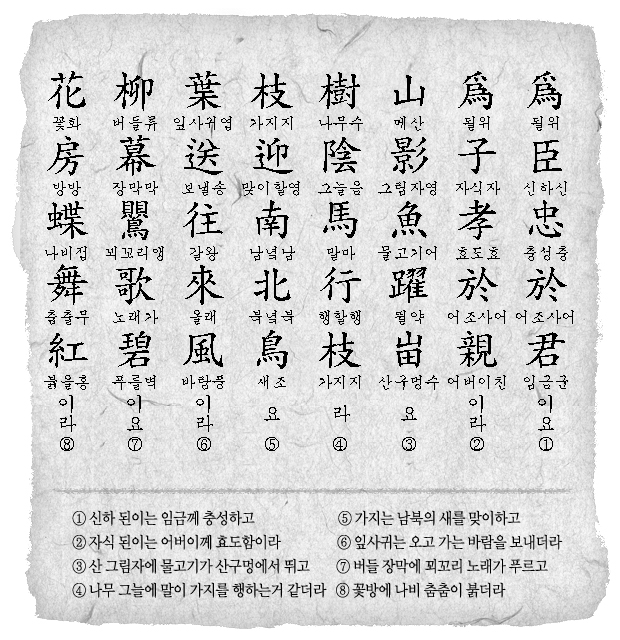 爲 될위 臣 신하신 忠 충성충 於 어조사어 君 임금군 이요 ①
爲 될위 子 자식자 孝 효도효 於 어조사어 親 어버이친 이라 ②
山 메산 影 그림자영 魚 물고기어 躍 뛸약 峀 산구멍수 요 ③
樹 나무수 陰 그늘음 馬 말마 行 행할행 枝 가지지 라 ④
枝 가지지 迎 맞이할영 南 남녘남 北 북녘북 鳥 새조 요 ⑤
葉 잎사귀엽 送 보낼송 往 갈왕 來 올래 風 바람풍 이라 ⑥
柳 버들류 幕 장막막 鸎 꾀꼬리앵 歌 노래가 碧 푸를벽 이요 ⑦
花 꽃화 房 방방 蝶 나비접 舞 춤출무 紅 붉을홍 이라 ⑧
① 신하 된이는 임금께 충성하고
② 자식 된이는 어버이께 효도함이라
③ 산 그림자에 물고기가 산구멍에서 뛰고
④ 나무 그늘에 말이 가지를 행하는거 같더라
⑤ 가지는 남북의 새를 맞이하고
⑥ 잎사귀는 오고 가는 바람을 보내더라
⑦ 버들 장막에 꾀꼬리 노래가 푸르고
⑧ 꽃방에 나비 춤춤이 붉더라